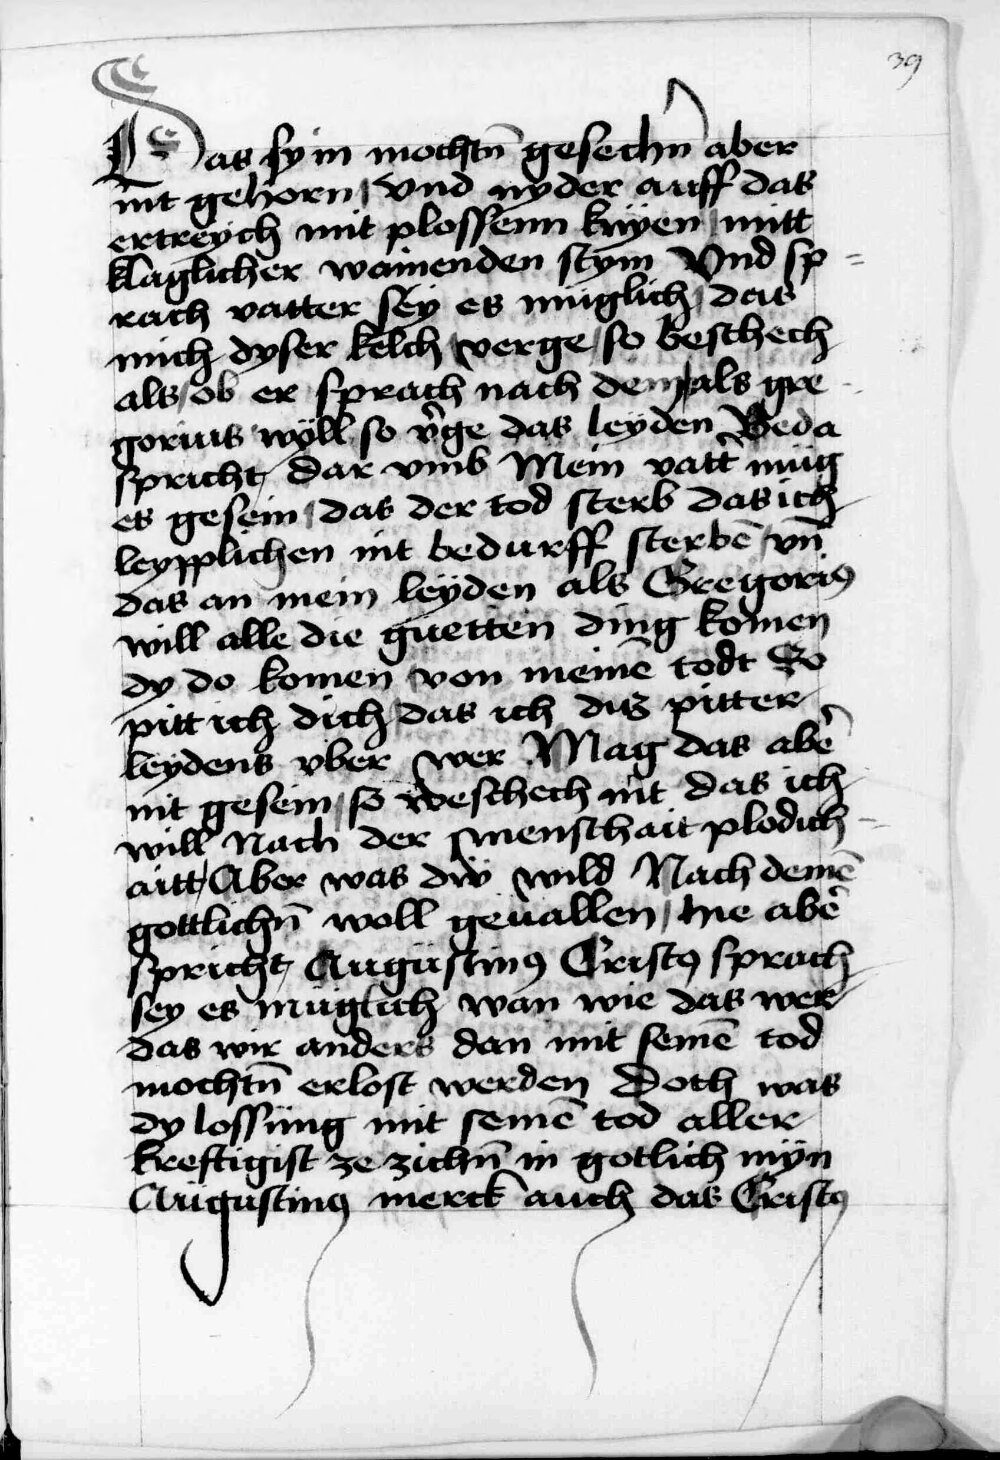 39
Das sy in mochtn̄ gesechn̄ aber
nit gehorn / Vnd nyder auff das
ertreych mit plossenn knyen / mitt
klaglicher wainenden stym Vnd sp=
rach vatter sey es muglich / das
mich dyser kelch verge / so beschech
als / ob er sprach nach dem / als gre-
gorius wyll so v̄ge das leyden Beda
spricht / dar vmb Mein vatt̄ müg
es gesein / das der tod sterb das ich
leypplichen nit bedurff sterbē / vn̄
das an mein leyden als Gregoriꝰ
will alle die guetten ding komen
dy do komen von meinē todt So
pitt ich dich / das ich diß pitter
leydens vber wer Mag das abē
nit gesein / so weschech nit das ich
will Nach der menschait plodich=
aitt / Aber was dw wild Nach demē
gottlichn̄ woll geuallen / hie abē
spricht / Augustinꝰ Cristꝰ sprach
sey es muglich wan wie das wer
das wir anders dan mit seinē tod
mochtn̄ erlost werden Doch was
dy lossung mit seinē tod aller
kreftigist ze zichn̄ in gotlich myn
Augustinꝰ merck auch das Cristꝰ